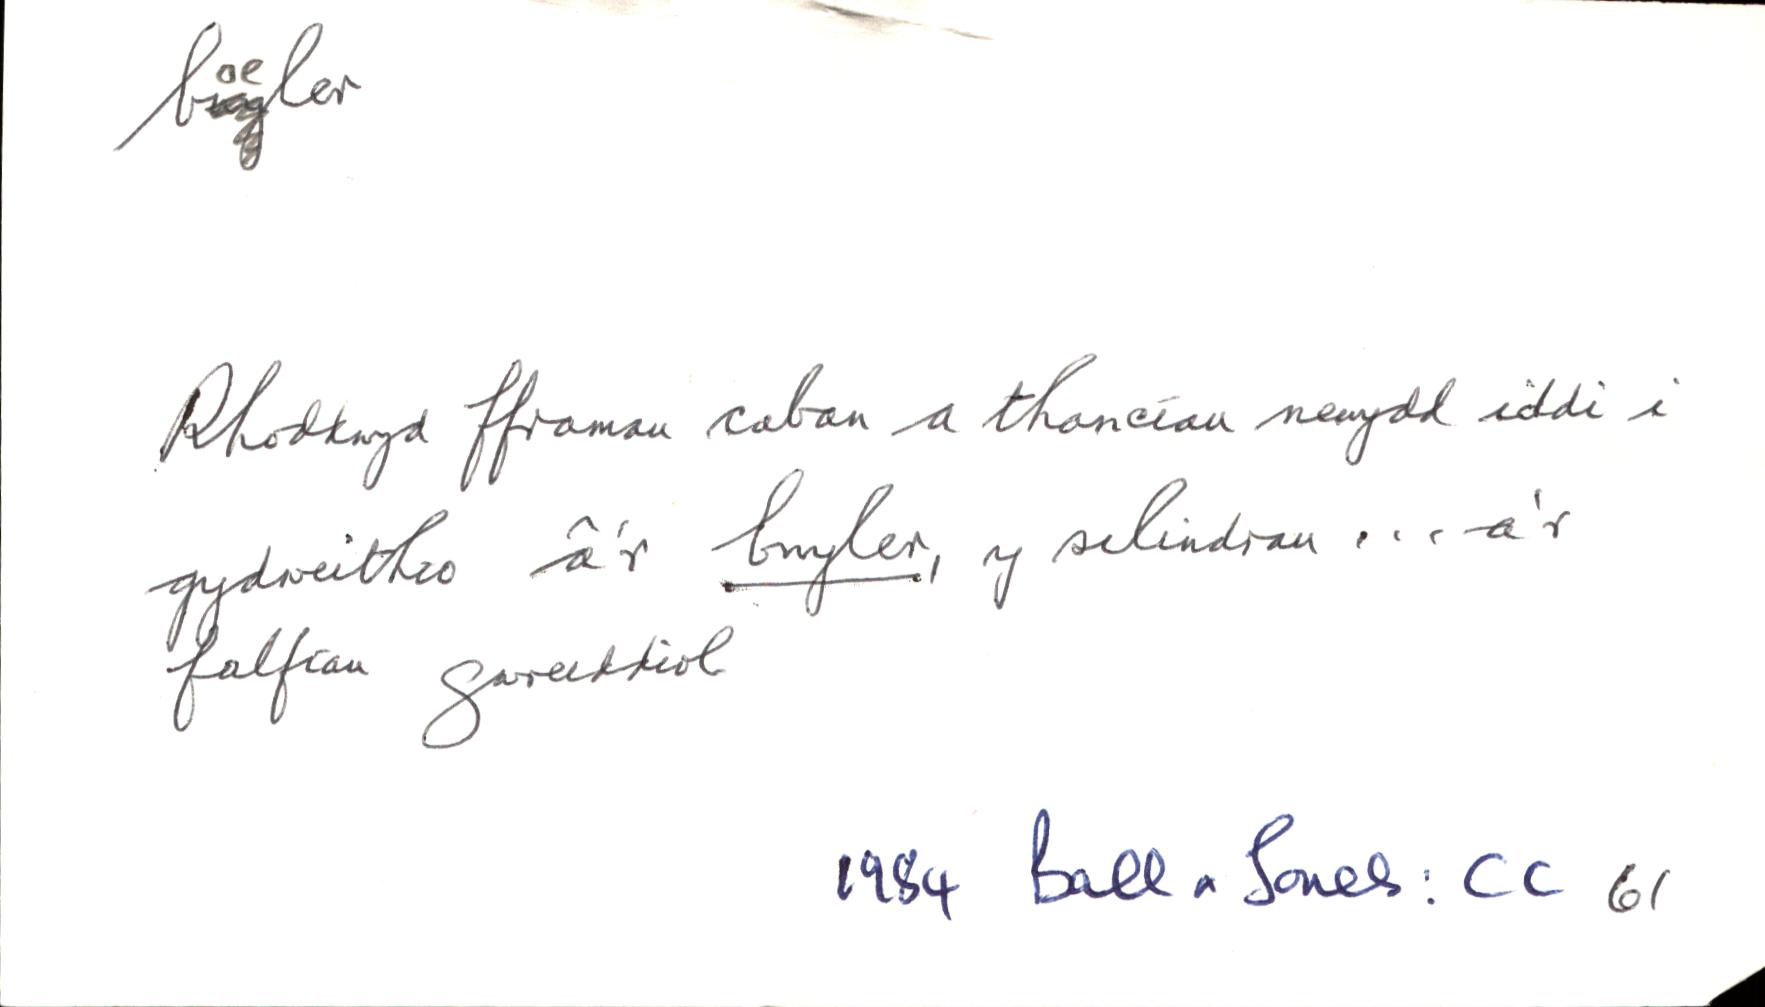 boeler
Rhoddwyd fframau caban a thanciau newydd iddi i
gydweithio â'r bwyler, y silindrau ... a'r
falfiau gwreiddiol
1984 Ball a Jones: CC 61